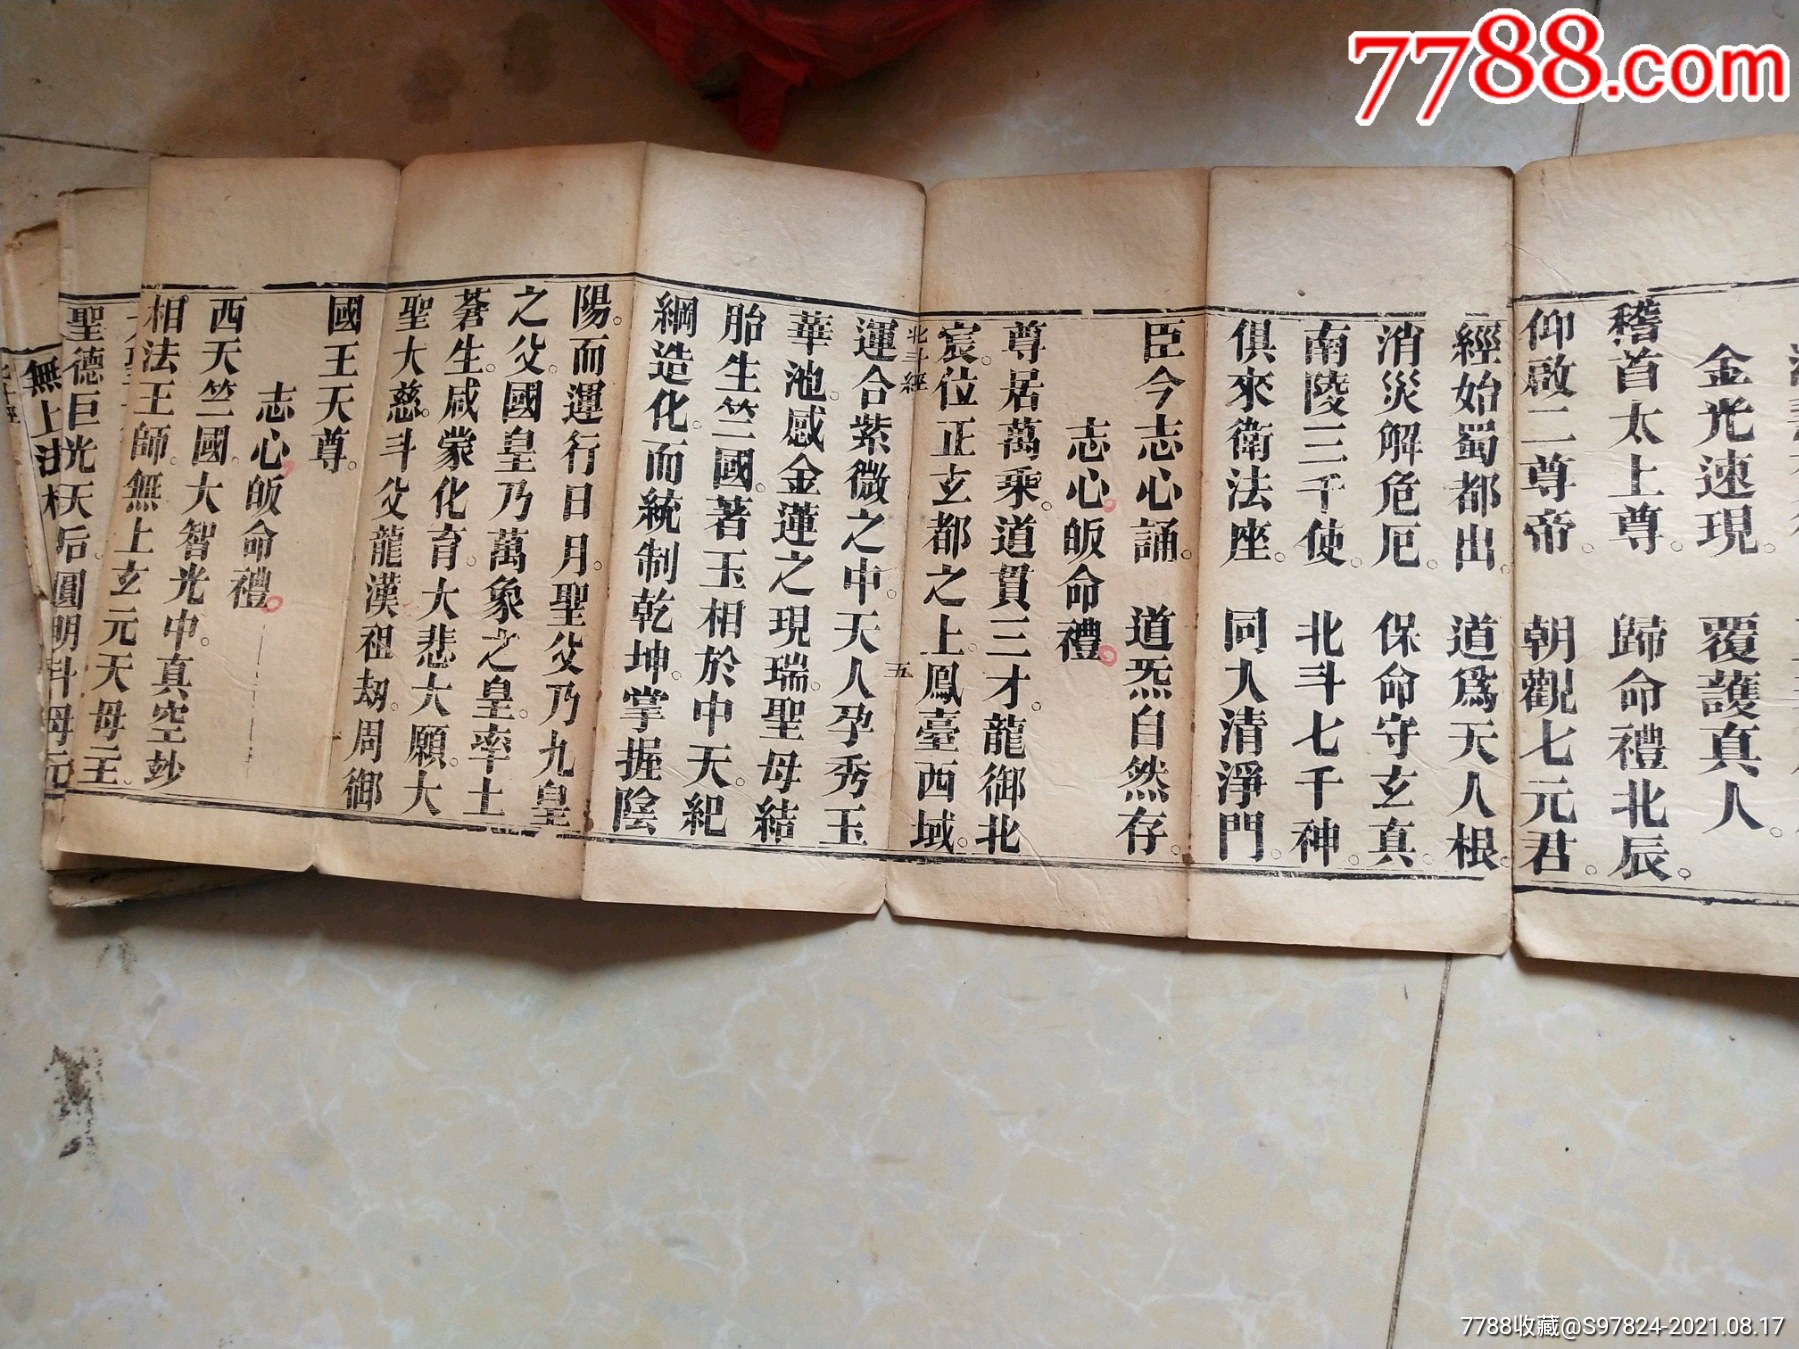 7788.com
金光速現。 覆護真人。
稽首太上尊。 歸命禮北辰。
仰啟二尊帝。 朝觀七元君。
經始蜀都出。 道爲天人根。
消災解危厄。 保命守玄真。
南陵三千使。 北斗七千神。
俱來衛法座。 同入清淨門。
臣今志心誦。 道炁自然存。
志心皈命禮。
尊居萬乘。道貫三才。龍御北
宸。位正玄都之上。鳳臺西域。
北斗經 五
運合紫微之中。天人孕秀玉
華池。感金蓮之現瑞。聖母結
胎生竺國。著玉相於中天。紀
綱造化。而統制乾坤。掌握陰
陽。而運行日月。聖父乃九皇
之父。國皇乃萬象之皇。率土
蒼生。咸蒙化育。大悲大願。大
聖大慈。斗父龍漢祖劫。周御
國王天尊。
志心皈命禮。
西天竺國。大智光中。真空妙
相法王師。無上玄元天母主。
聖德巨光天后。圓明斗母元
北斗經
無上法
7788收藏@S97824-2021.08.17